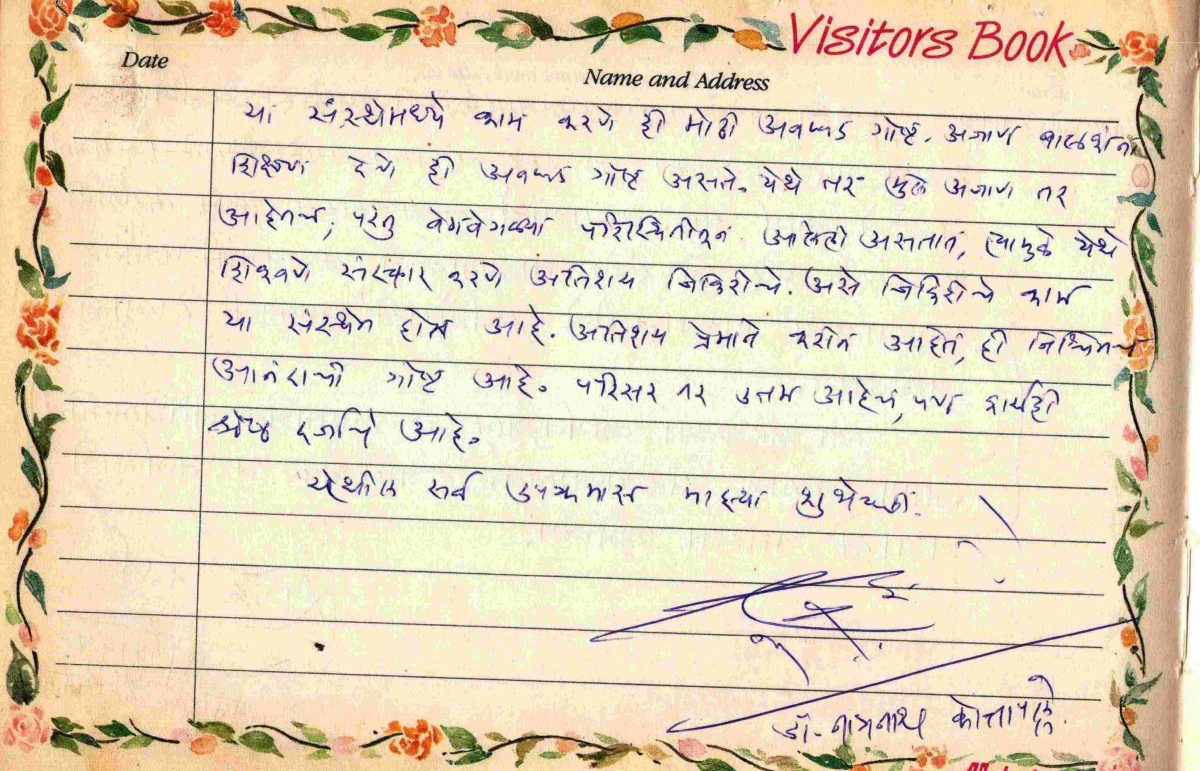 Visitors Book
Date
Name and Address
या संस्थेमध्ये काम करणे ही मोठी अवघड गोष्ट. अजाण बालकांना
शिक्षण देणे ही अवघड गोष्ट असते. येथे तर मुले अजाण तर
आहेतच, परंतु वेगवेगळ्या परिस्थितीतून आलेली असतात, त्यामुळे येथे
शिकवणे संस्कार करणे अतिशय जिकिरीचे. असे जिकिरीचे काम
या संस्थेत होत आहे. अतिशय प्रेमाने करीत आहेत, ही निश्चितच
आनंदाची गोष्ट आहे. परिसर तर उत्तम आहेच, पण कार्यही
श्रेष्ठ दर्जाचे आहे.
येथील सर्व उपक्रमास माझ्या शुभेच्छा.
डॉ. नागनाथ कोत्तापल्ले.